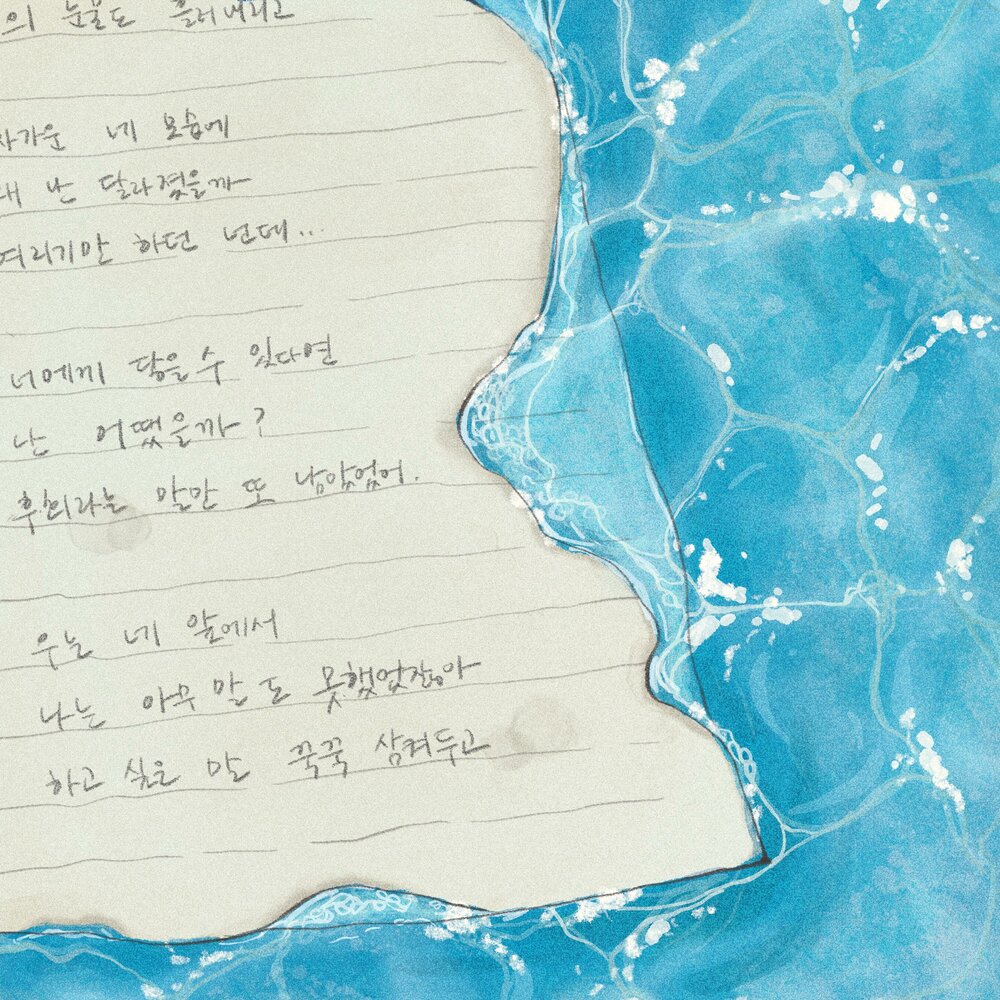 의 눈물도 흘려버리고
차가운 네 모습에
난 달라졌을까
여리기만 하던 넌데...
너에게 닿을 수 있다면
난 어땠을까?
후회라는 말만 또 남았었어.
우는 네 앞에서
나는 아무 말도 못했었잖아
하고 싶은 말 꾹꾹 삼켜두고